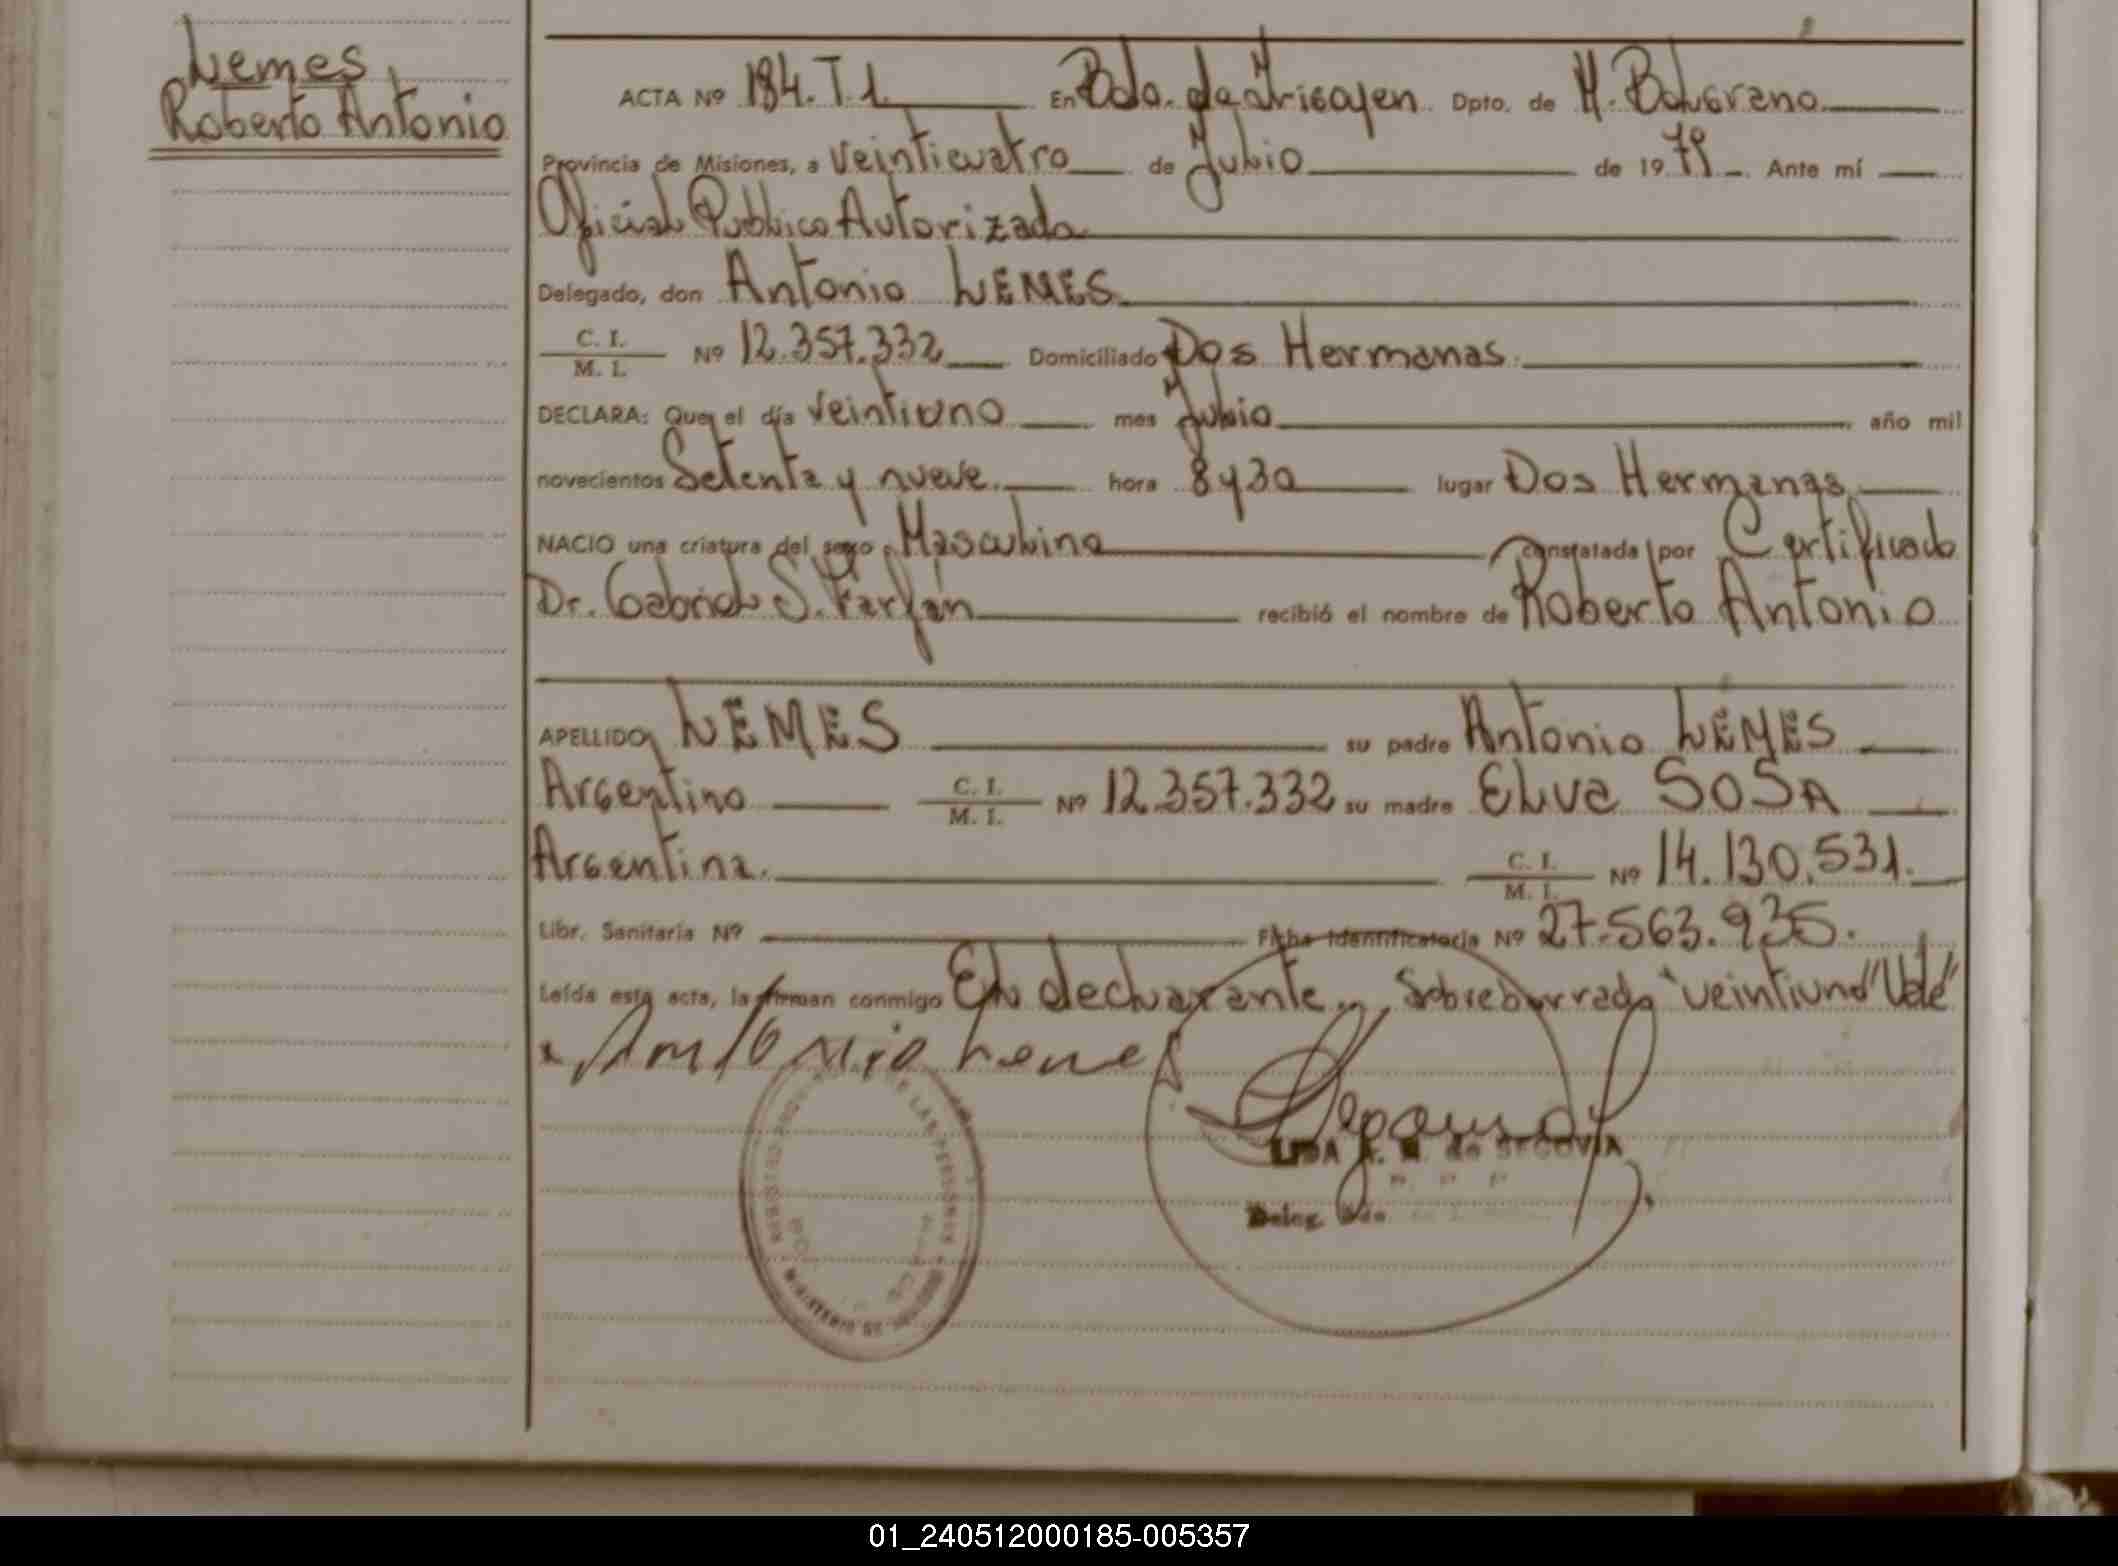 Lemes,
Roberto Antonio
ACTA Nº 184. T. 1 En Bdo. de Irigoyen Dpto. de M. Belgrano
Provincia de Misiones, a veinticuatro de Julio de 1979 Ante mí
Oficial Público Autorizado
Delegado, don Antonio LEMES
C. I. / M. I. Nº 12.357.332 Domiciliado Dos Hermanas
DECLARA: Que el día veintiuno mes Julio año mil
novecientos Setenta y nueve hora 8 y 30 lugar Dos Hermanas
NACIO una criatura del sexo Masculino constatada por Certificado
Dr. Gabriel S. Farfán recibió el nombre de Roberto Antonio
APELLIDO LEMES su padre Antonio LEMES
Argentino C. I. / M. I. Nº 12.357.332 su madre Elva SOSA
Argentina. C. I. / M. I. Nº 14.130.531.
Libr. Sanitaria Nº Ficha Identificatoria Nº 27.563.935.
Leída esta acta, la firman conmigo El declarante. Sobreborrado "veintiuno" Vale"
Antonio Lemes
DE LAS PERSONAS
LIDA de SEGOVIA
Deleg. Bdo
01_240512000185-005357